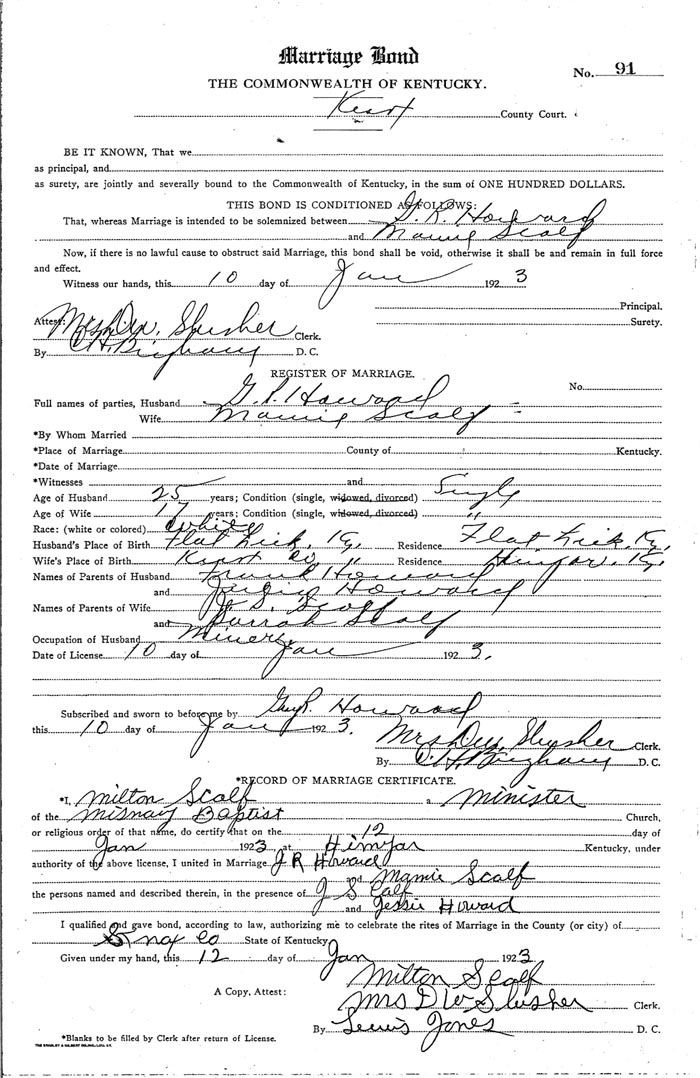 Marriage Bond
No. 91
THE COMMONWEALTH OF KENTUCKY.
Knox County Court.
BE IT KNOWN, That we
as principal, and
as surety, are jointly and severally bound to the Commonwealth of Kentucky, in the sum of ONE HUNDRED DOLLARS.
THIS BOND IS CONDITIONED AS FOLLOWS:
That, whereas Marriage is intended to be solemnized between G. R. Howard
and Mamie Scalf
Now, if there is no lawful cause to obstruct said Marriage, this bond shall be void, otherwise it shall be and remain in full force
and effect.
Witness our hands, this 10 day of Jan 192 3
Principal.
Attest: Mrs. D. W. Slusher Clerk. Surety.
By Bingham D. C.
REGISTER OF MARRIAGE.
No.
Full names of parties, Husband G. R. Howard
Wife Mamie Scalf
*By Whom Married
*Place of Marriage County of Kentucky.
*Date of Marriage
*Witnesses and
Age of Husband 25 years; Condition (single, widowed, divorced) Single
Age of Wife 17 years; Condition (single, widowed, divorced) "
Race: (white or colored) White
Husband's Place of Birth Flat Lick, Ky, Residence Flat Lick, Ky,
Wife's Place of Birth Knox Co " Residence Himyar, Ky,
Names of Parents of Husband Frank Howard
and Howard
Names of Parents of Wife J. S. Scalf
and Sarrah Scalf
Occupation of Husband Miner
Date of License 10 day of Jan 192 3.
Subscribed and sworn to before me by Guy R. Howard
this 10 day of Jan 192 3.
Mrs D. W. Slusher Clerk.
By Bingham D. C.
*RECORD OF MARRIAGE CERTIFICATE.
*I, Milton Scalf a Minister
of the Misnay Baptist Church,
or religious order of that name, do certify that on the 12 day of
Jan 1923 at Himyar Kentucky, under
authority of the above license, I united in Marriage J R Howard
and Mamie Scalf
the persons named and described therein, in the presence of J S Calf
and Jessie Howard
I qualified and gave bond, according to law, authorizing me to celebrate the rites of Marriage in the County (or city) of
Knox Co State of Kentucky
Given under my hand, this 12 day of Jan 192 3
Milton Scalf
A Copy, Attest: Mrs D W Slusher Clerk.
By Lewis Jones D. C.
*Blanks to be filled by Clerk after return of License.